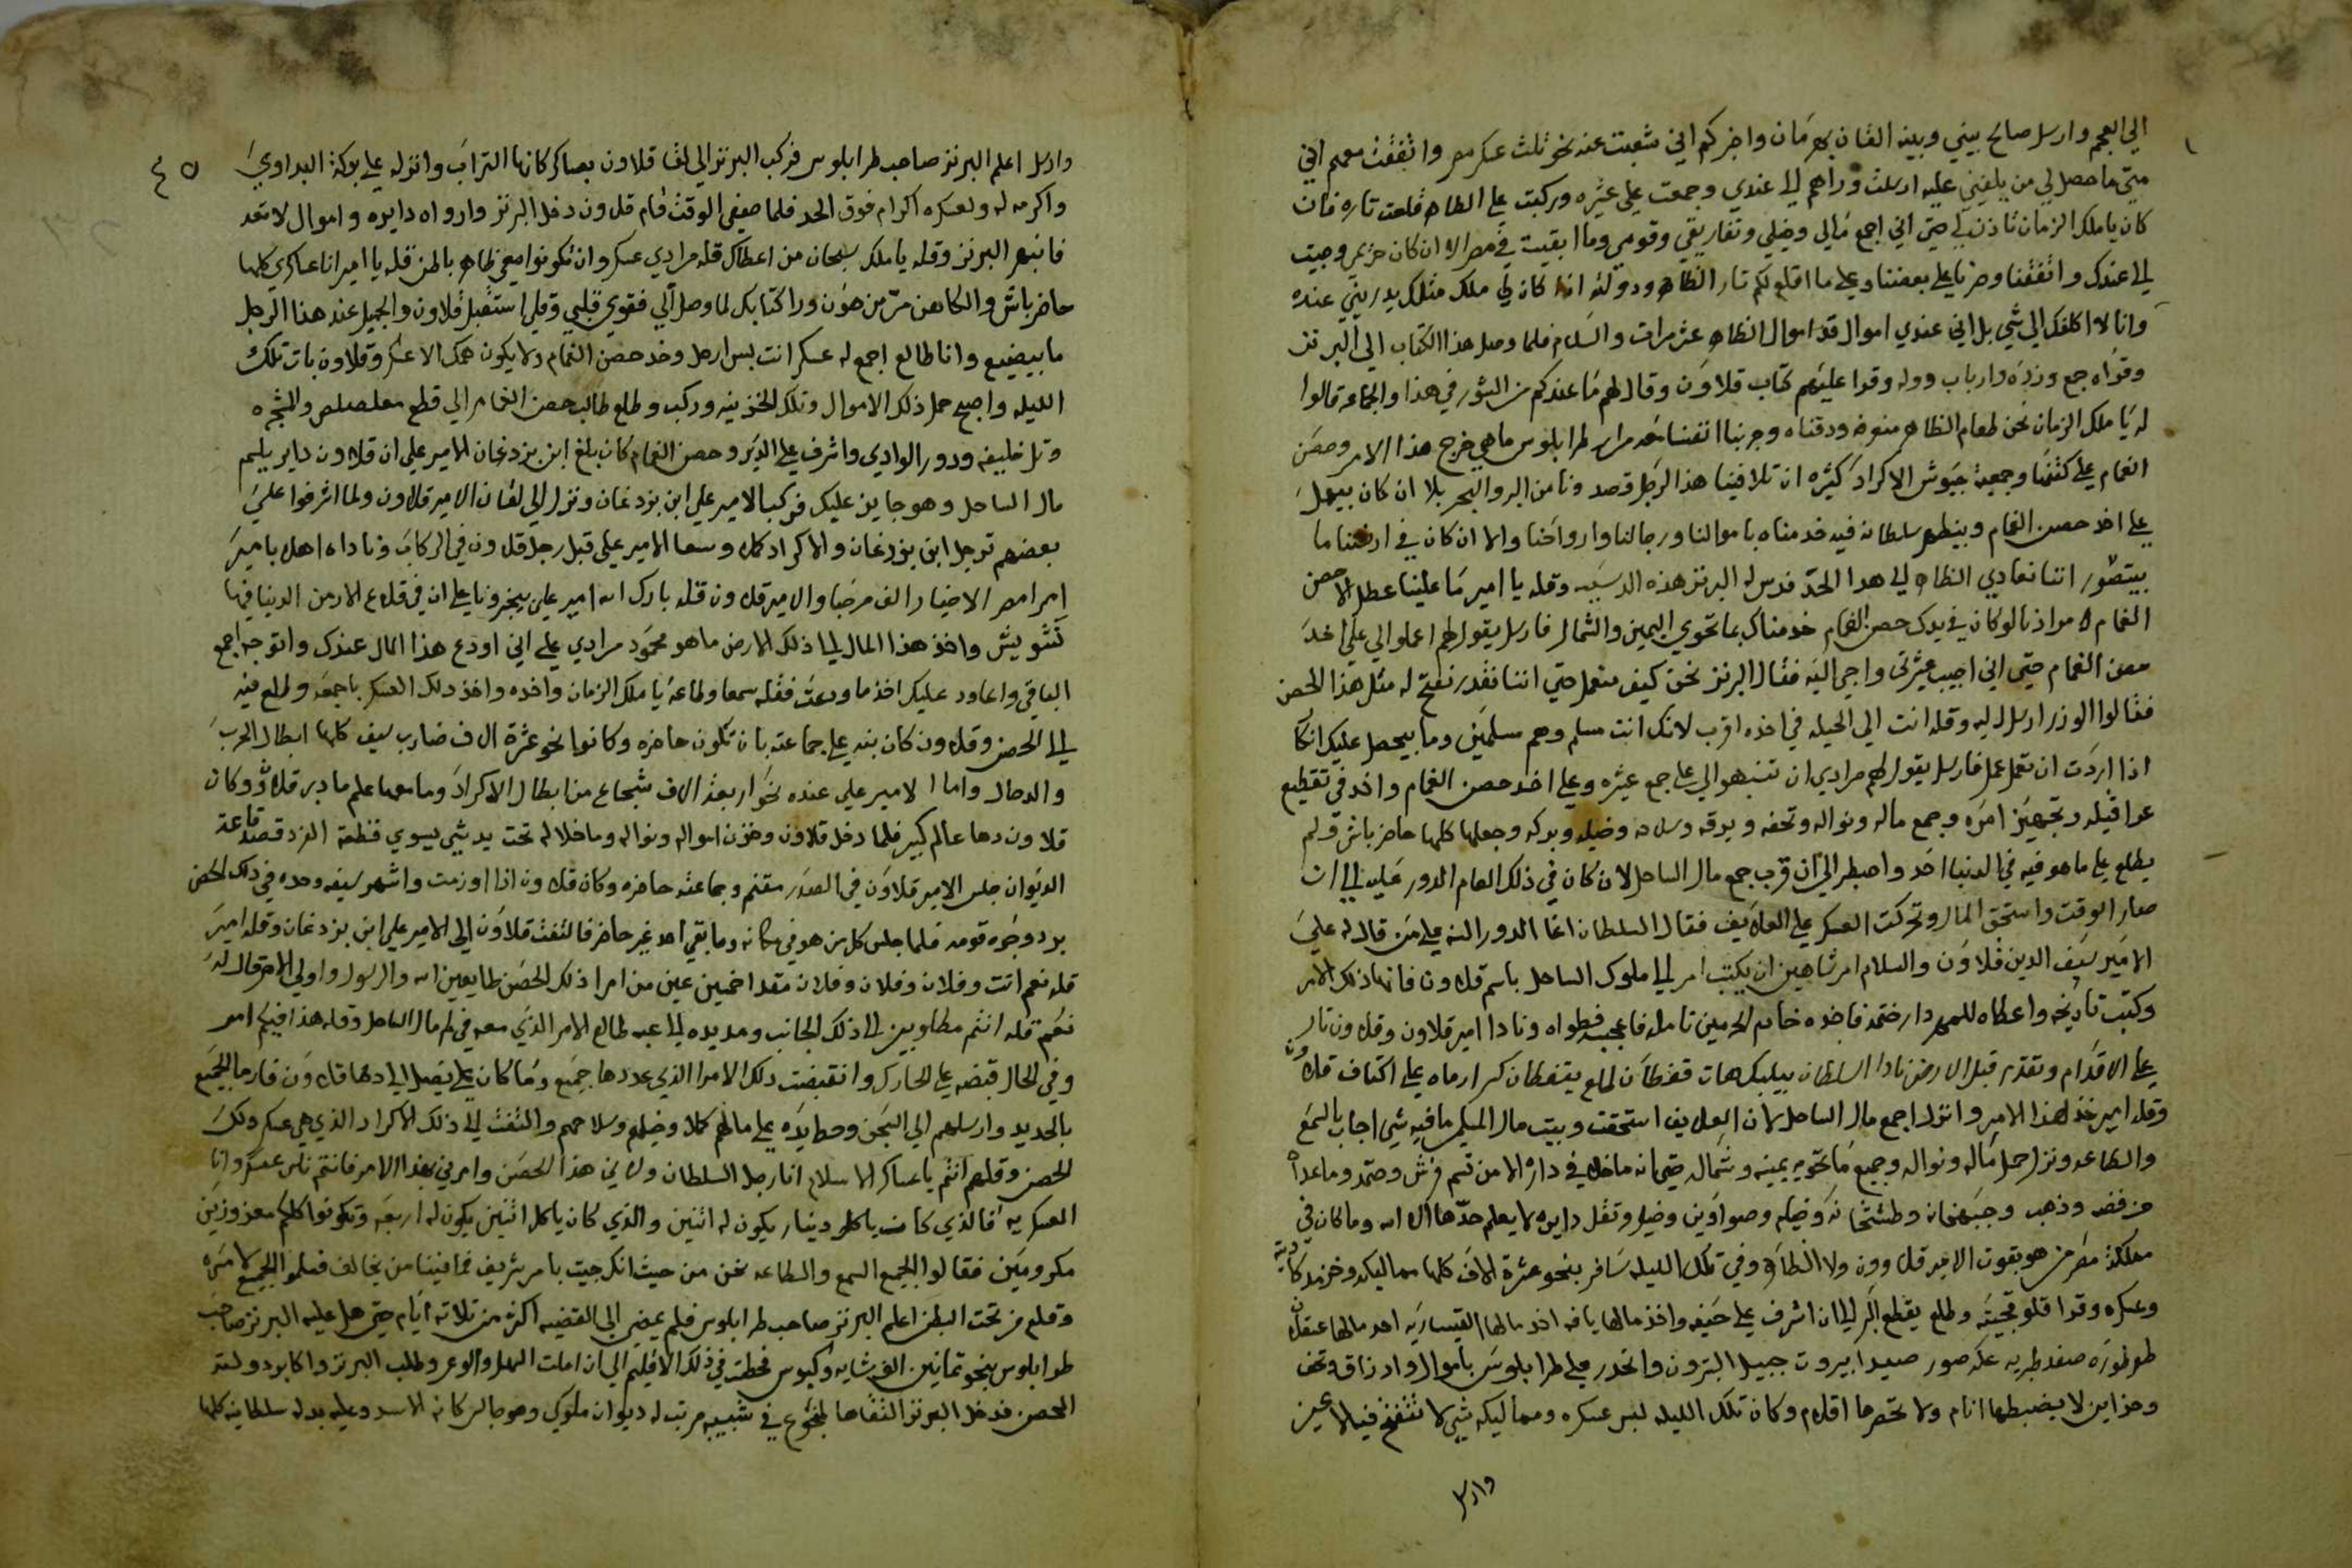 الي العجم وارسل صالح بيني وبينه القان بهرمان واخبركم اني شبعت عنه نحو ثلث عسكر مصر واتفقت معهم اني
متي ما حصل لي من يلفيني عليه ارسلت وراهم الي عندي وجمعت علي عشره وركبت علي الظاهر قلعت تاره فان
كان يا ملك الزمان تاذن لي حتي اني اجمع مالي وخيلي وتفاريقي وقومي وما ابقيت في مصر الا ان كان حزيمر وجيت
الي عندك واتفقنا وحزنا علي بعضنا وعلي ما اقلع لكم تار الظاهر ودولته اذا كان لي ملك مثلك يدريني عنده
وانا لا اكلفك الي شي بل اني عندي اموال قد اموال الظاهر عشر مرات والسلام فلما وصل هذا الكتاب الي البرنز
وقراه جمع وزره وارباب دوله وقرا عليهم كتاب قلاون وقال لهم ما عندكم من الشور في هذا والجماعه قالوا
له يا ملك الزمان نحن طعام الظاهر ودقناه وجربنا انفسنا مرار طرابلوس ماهي خرج هذا الامر وحصن
الغمام علي كتفنا وجمعية جيوش الاكراد كثيره ان تلاقينا هذا الرجل قصدونا من البر والبحر بلا ان كان بيعمل
علي اخد حصن الغمام وبيظهر سلطانه فيه خدمناه باموالنا ورجالنا وارواحنا والا ان كان في ارضنا ما
بيتصور اننا نعادي الظاهر الي هدا الحد فدس له البرنز هذه الدسيسه وقله يا امير ما علينا عطل الا حصن
الغمام مرادنا لو كان في يدك حصن الغمام خدمناك بما تحوي اليمين والشمال فارسل يقول لهم اعملوا لي علي اخد
حصن الغمام حتي اني اجيب عشرتي واجي اليه فقال البرنز نحن كيف منعمل حتي اننا نقدر نفتح له مثل هذا الحصن
فقالوا الوزر ارسل اليه وقله انت الي الحيله في اخده اقرب لانك انت مسلم وهم مسلمين وما بيحصل عليك انكا
اذا اردت ان تعمل عمل فارسل يقول لهم مرادي ان تنبهوا لي علي جمع عشره وعلي اخد حصن الغمام واخد في تقطيع
عراقيله وتجهيز امره وجمع ماله ونواله وتحفه ويرقه وسلاحه وخيله وبركه وجعلها كلها حاضر باش ولم
يطلع علي ما هو فيه في الدنيا احد واصطبر الي ان قرب جمع مال الساحل لان كان في ذلك العام الدور عليه الي ان
صار الوقت واستحق المال وتحركت العسكر علي العلايف فقال السلطان اغا الدور السنه علي من قال له علي
الامير سيف الدين قلاون والسلام امر شاهين ان يكتب امر الي ملوك الساحل باسم قلاون فانها ذلك الامر
وكتب تاريخه واعطاه للمهردار ختمه فاخده خادم الحرمين تامله فاعجبه فطواه ونادا امير قلاون وقلاون تار
علي الاقدام وتقدم قبل الارض نادا السلطان بيلبك هات قفطان طلع بقفطان كبير ارماه علي اكتاف قلاون
وقله امير خذ هذا الامر وانزل اجمع مال الساحل لان العلايف استحقت وبيت مال المسلمين ما فيه شي اجاب بالسمع
والطاعه ونزل حمل ماله ونواله وجميع ما تحويه يمينه وشماله حتي انه ما خلا في داره الا من قسم فرش وصمد وما عداه
من فضه وذهب وجبخانه وطشتخانه وخيم وصواوين وخيل وثقل دايره لا يعلم حدها الا الله وما كان في
مملكة مصر من هو بقوت الامير قلاوون ولا الظاهر وفي تلك الليله سافر بنحو عشرة الاف كلها مماليكه وخزنداريته
وعسكره وقدا قلوقجيته وطلع يقطع البر الي ان اشرف علي حيفه واخذ مالها يافه اخد مالها القيساريه اخد مالها عسقلان
طرطوزه صفد طبريه عكه صور صيدا بيروت جبيل البترون وانحدر علي طرابلوس باموال وارزاق وتحف
وخزاين لا يضبطها انام ولا تحصرها اقلام وكان تلك الليله لبس عسكره ومماليكه شي لا تنفتح فيه الاعين
وارسل
٤٥
وارسل اعلم البرنز صاحب طرابلوس فركب البرنز الي لقا قلاون بعساكر كانها التراب وانزله علي بركة البداوي
واكرمه له ولعسكره اكرام فوق الحد فلما صفي الوقت قام قلاون دخل البرنز واروا دايره واموال لا تعد
فانبهر البرنز وقله يا ملك سبحان من اعطاك قله مرادي عسكر وان تكونوا معي ظاهر باطن قله يا امير انا عساكري كلها
حاضر باش والكاهن مر من هون ورا كتابك لما وصل الي فقوي قلبي وقلي استقبل قلاون والجميل عند هذا الرجل
ما بيضيع وانا طالع اجمع له عسكر انت بس ارحل وخد حصن الغمام ولا يكون همك الا عسكر وقلاون بات تلك
الليله واصبح حمل ذلك الاموال وتلك الخزينه وركب وطلع طالب حصن الغمام الي قطع والشجره
وتل خليفه ودور الوادي واشرف علي الدير وحصن الغمام كان بلغ ابن بزدغان الامير علي ان قلاون داير يلم
مال الساحل وهو جايز عليك فركب الامير علي ابن بزدغان ونزل الي لقان الامير قلاون ولما اشرفوا علي
بعضهم ترجل ابن بزدغان والاكراد كلها وسعا الامير علي قبل رجل قلاون في الركاب وناداه اهلا يا مير
امرا مصر الاخيار الف مرحبا والامير قلاون قله بارك الله امير علي بيخبرونا علي ان في قلاع الارمن الدنيا فيها
تشويش واخذ هذا المال الي ذلك الارض ما هو محمود مرادي علي اني اودع هذا المال عندك واتوجه اجمع
الباقي واعاود عليك اخذ ما ودعت فقله سمعا وطاعه يا ملك الزمان واخده واخذ دلك العسكر باجمعه وطلع فيه
الي الحصن وقلاون كان بنه علي جماعته بان تكون حاضره وكانوا نحو عشرة الاف ضارب سيف كلها ابطال الحرب
والدحال واما الامير علي عنده نحو اربعة الاف شجاع من ابطال الاكراد وما معها علم ما دبر قلاون وكان
قلاون دها عالم كبير فلما دخل قلاون وخزن امواله ونواله وما خلا له تحت يد شي يسوي فنطعة الفرد قصد قاعة
الديوان جلس الامير قلاون في الصدر مقنم وجماعته حاضره وكان قلاون اذا اوزمت واشهر سيفه وحده في ذلك الحصن
يرد وجوه قومه فلما جلس كل من هو في مكانه وما بقي احد غير حاضر فالتفت قلاون الي الامير علي ابن بزدغان وقله امير
قله نعم انت وفلان وفلان وفلان مقدا خمسين عين من امرا ذلك الحصن طايعين الله والرسول واولي الامر قال له
نعم قله انتم مطلوبين الي ذلك الجانب ومد يده الي عبه طالع الامر الذي معه في لم مال الساحل وقله هذا فيكم امر
وفي الحال قبضه علي الحارك وانقبضت ذلك الامرا الذي عددها جميع وما كان علي يصل الي دهاقلاون فارما الجميع
بالحديد وارسلهم الي السجن وحط ايده علي مالهم كلها وخيلهم وسلاحهم والتفت الي ذلك الاكراد الذي هي عسكر ذلك
الحصن وقلهم انتم يا عساكر الاسلام انا رجل السلطان ولاني هذا الحصن وامرني بهذا الامر فانتم ناس عسكر وانا
العسكريه فالذي كان ياكل دينار يكون له اثنين والذي كان ياكل اثنين يكون له اربعه وتكونوا كلكم معزوزين
مكرومين فقالوا الجميع السمع والطاعه نحن من حيث انك جيت بامر شريف فما فينا من يخالف فسلموا الجميع لامره
وقلاع من تحت البطن اعلم البرنز صاحب طرابلوس فلم يمضي الي القضيه اكثر من تلاته ايام حتي هل عليه البرنز صاحب
طرابلوس بنحو تمانين الف شايه وكبوس فحطت في ذلك الاقليم الي ان املت السهل والوعر وطلب البرنز واكابر دولته
الحصن فدخل البرنز التقاها بخشوع في شبيه مرتب له ديوان ملوكي وهو جالس كانه الاسد وعليه بدله سلطانيه كلها